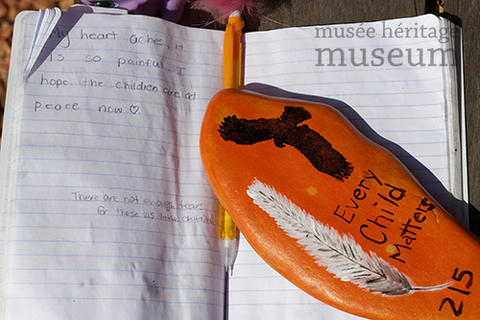 My heart aches, it
is so painful. I
hope the children are at
peace now ♡.
There are not enough tears
for these 215 little children
Every
Child
Matters
215
musée héritage
museum